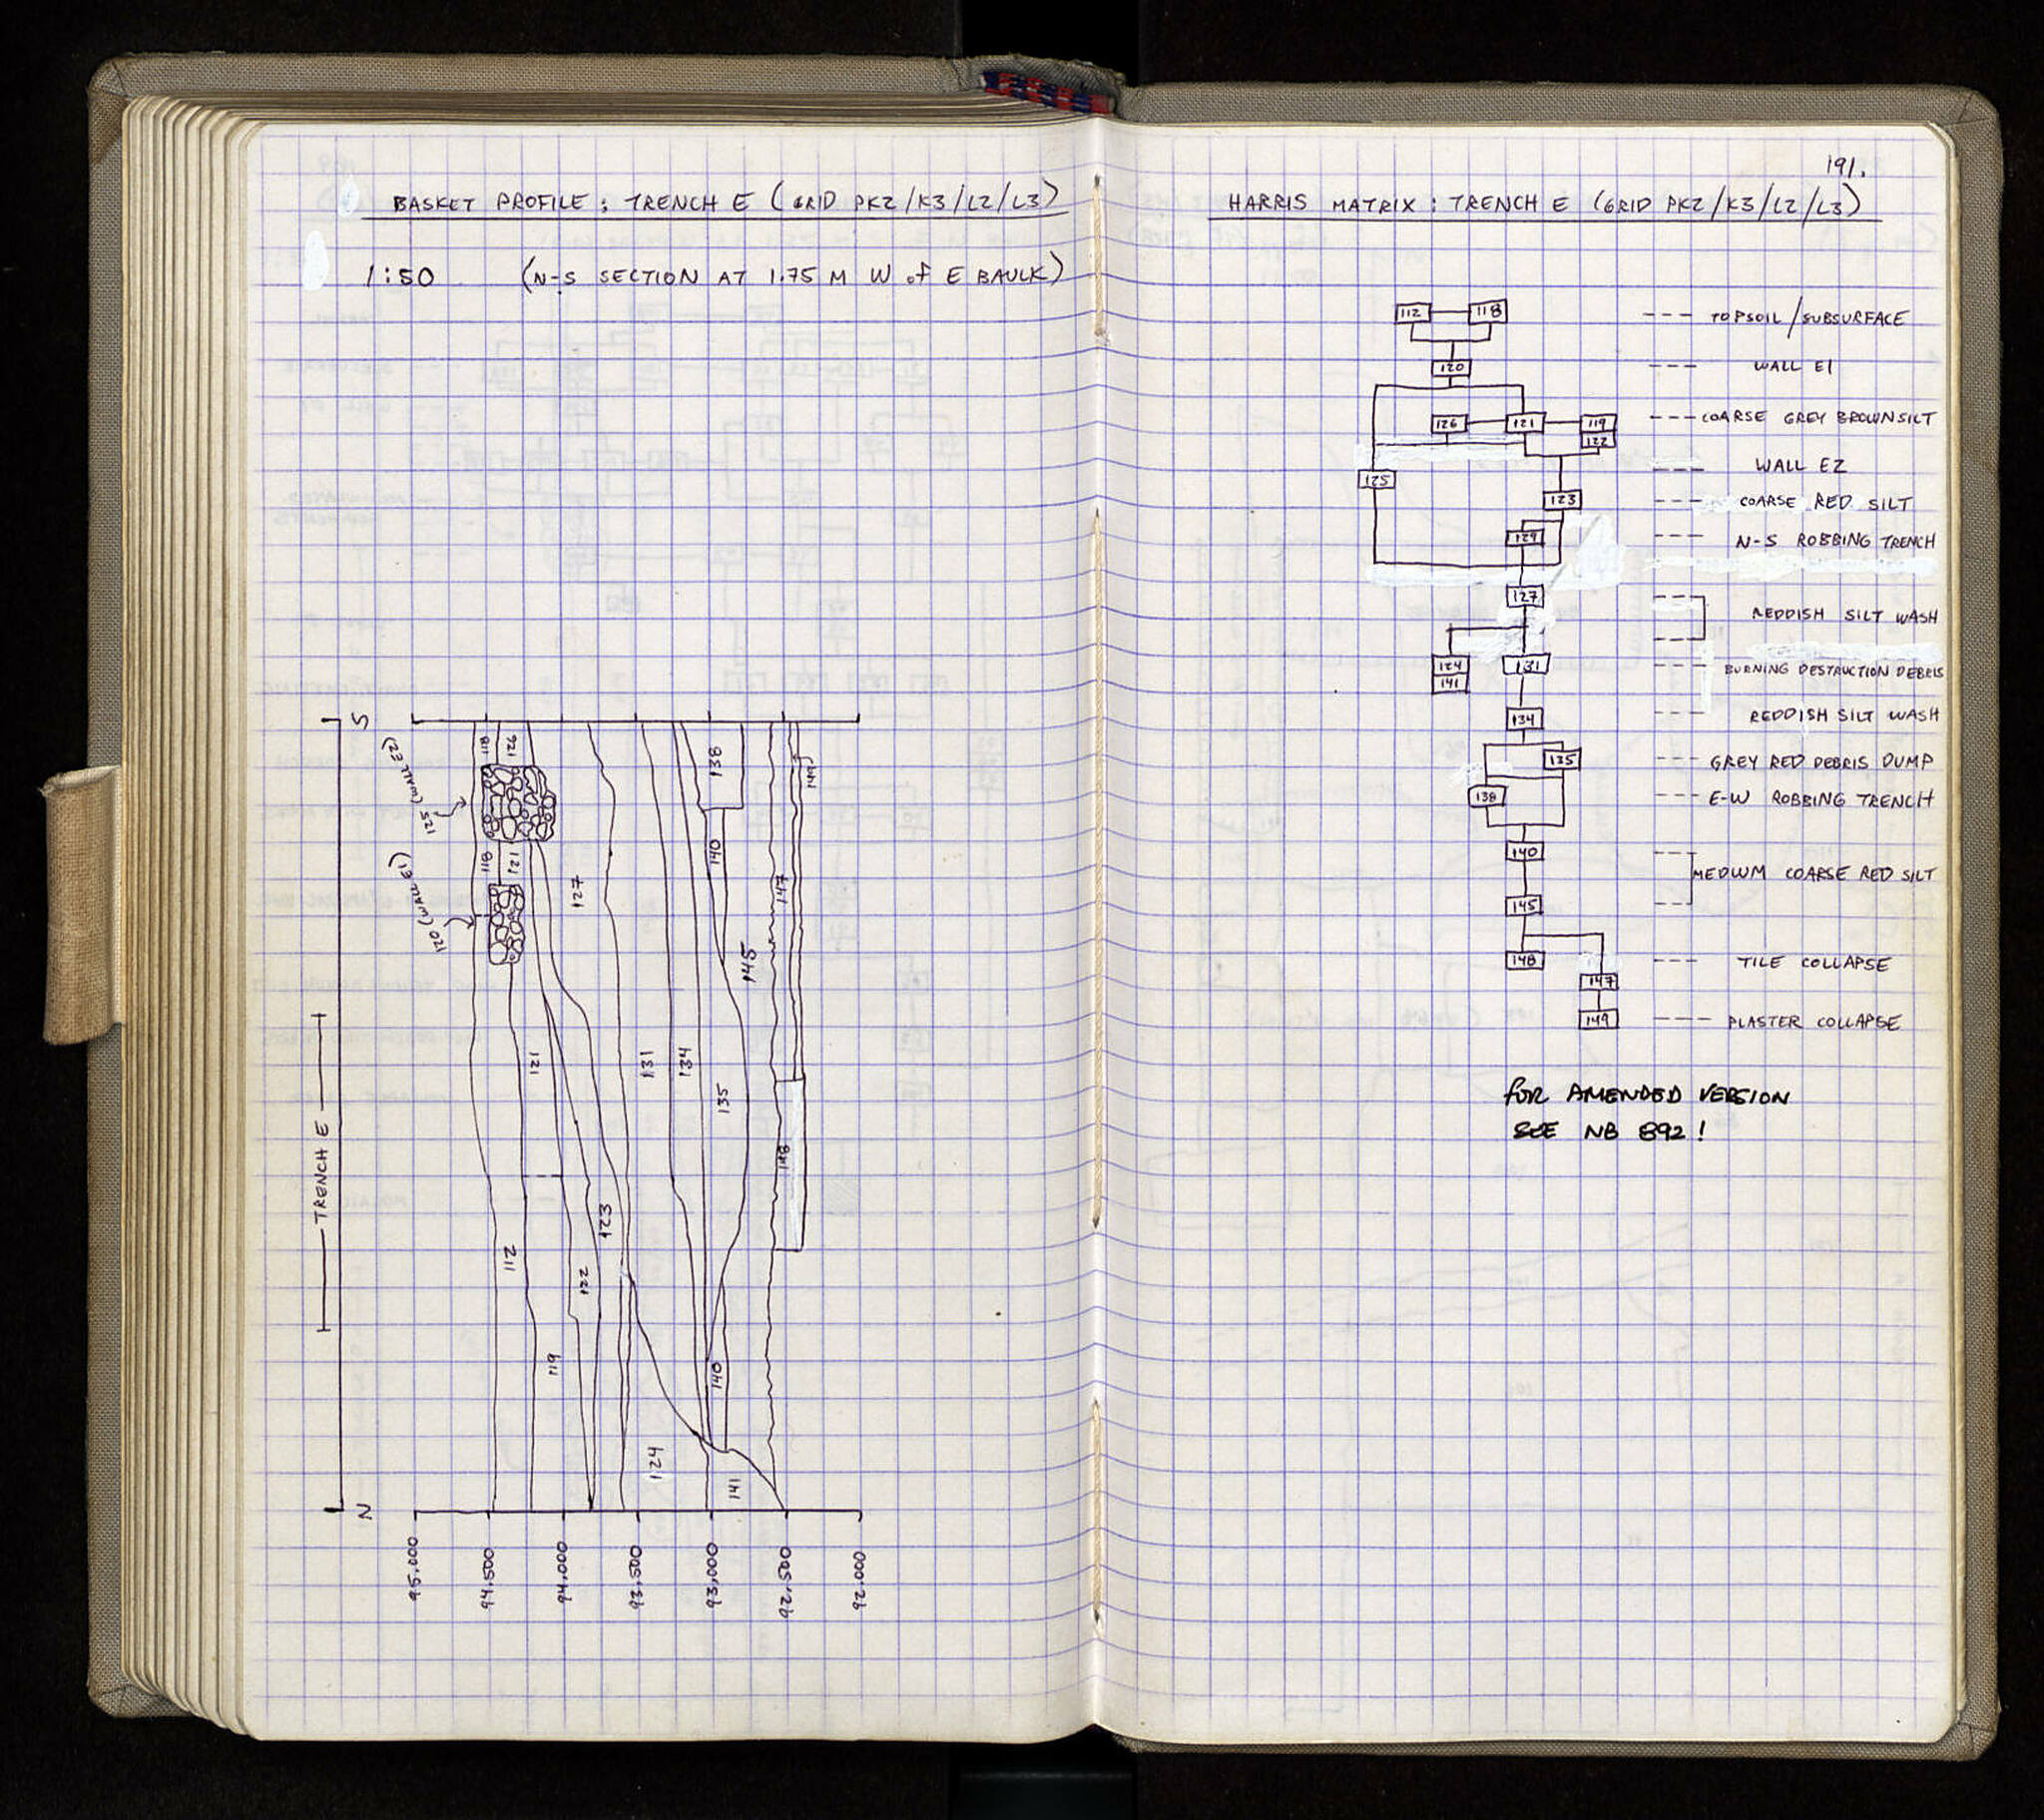 BASKET PROFILE : TRENCH E (GRID PK2/K3/L2/L3)
1:50 (N-S SECTION AT 1.75 M W of E BAULK)
S
118
126
138
149
125 (WALL E2)
118
121
140
127
147
120 (WALL E1)
145
TRENCH E
121
131
134
135
148
112
123
122
119
140
124
141
N
95.000
94.500
94.000
93.500
93.000
92.500
92.000
191.
HARRIS MATRIX : TRENCH E (GRID PK2/K3/L2/L3)
112 118 --- TOPSOIL/SUBSURFACE
120 --- WALL E1
126 121 119 --- COARSE GREY BROWN SILT
122
--- WALL E2
125
123 --- COARSE RED SILT
129 --- N-S ROBBING TRENCH
127 --- REDDISH SILT WASH
124 131 --- BURNING DESTRUCTION DEBRIS
141
134 --- REDDISH SILT WASH
135 --- GREY RED DEBRIS DUMP
138 --- E-W ROBBING TRENCH
140 --- MEDIUM COARSE RED SILT
145 ---
148 --- TILE COLLAPSE
147
149 --- PLASTER COLLAPSE
FOR AMENDED VERSION
SEE NB 892!